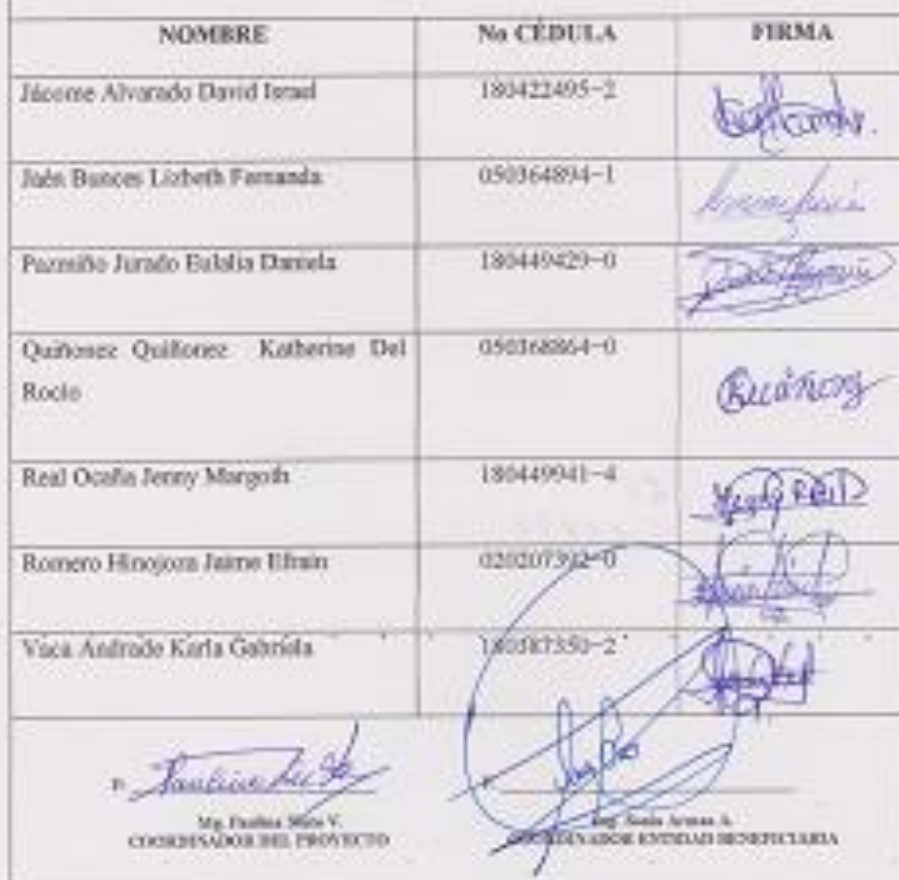 NOMBRE No CÉDULA FIRMA
Jácome Alvarado David Israel 180422495-2
Jaén Bunces Lizbeth Fernanda 050364894-1
Pazmiño Jurado Eulalia Daniela 180449429-0
Quiñonez Quiñonez Katherine Del 050368864-0
Rocío
Real Ocaña Jenny Margoth 180449941-4
Romero Hinojoza Jaime Efraín 020207392-0
Vaca Andrade Karla Gabriela 180387350-2
Mg. Paulina V.
COORDINADOR DEL PROYECTO
Ing. A.
COORDINADOR ENTIDAD BENEFICIARIA